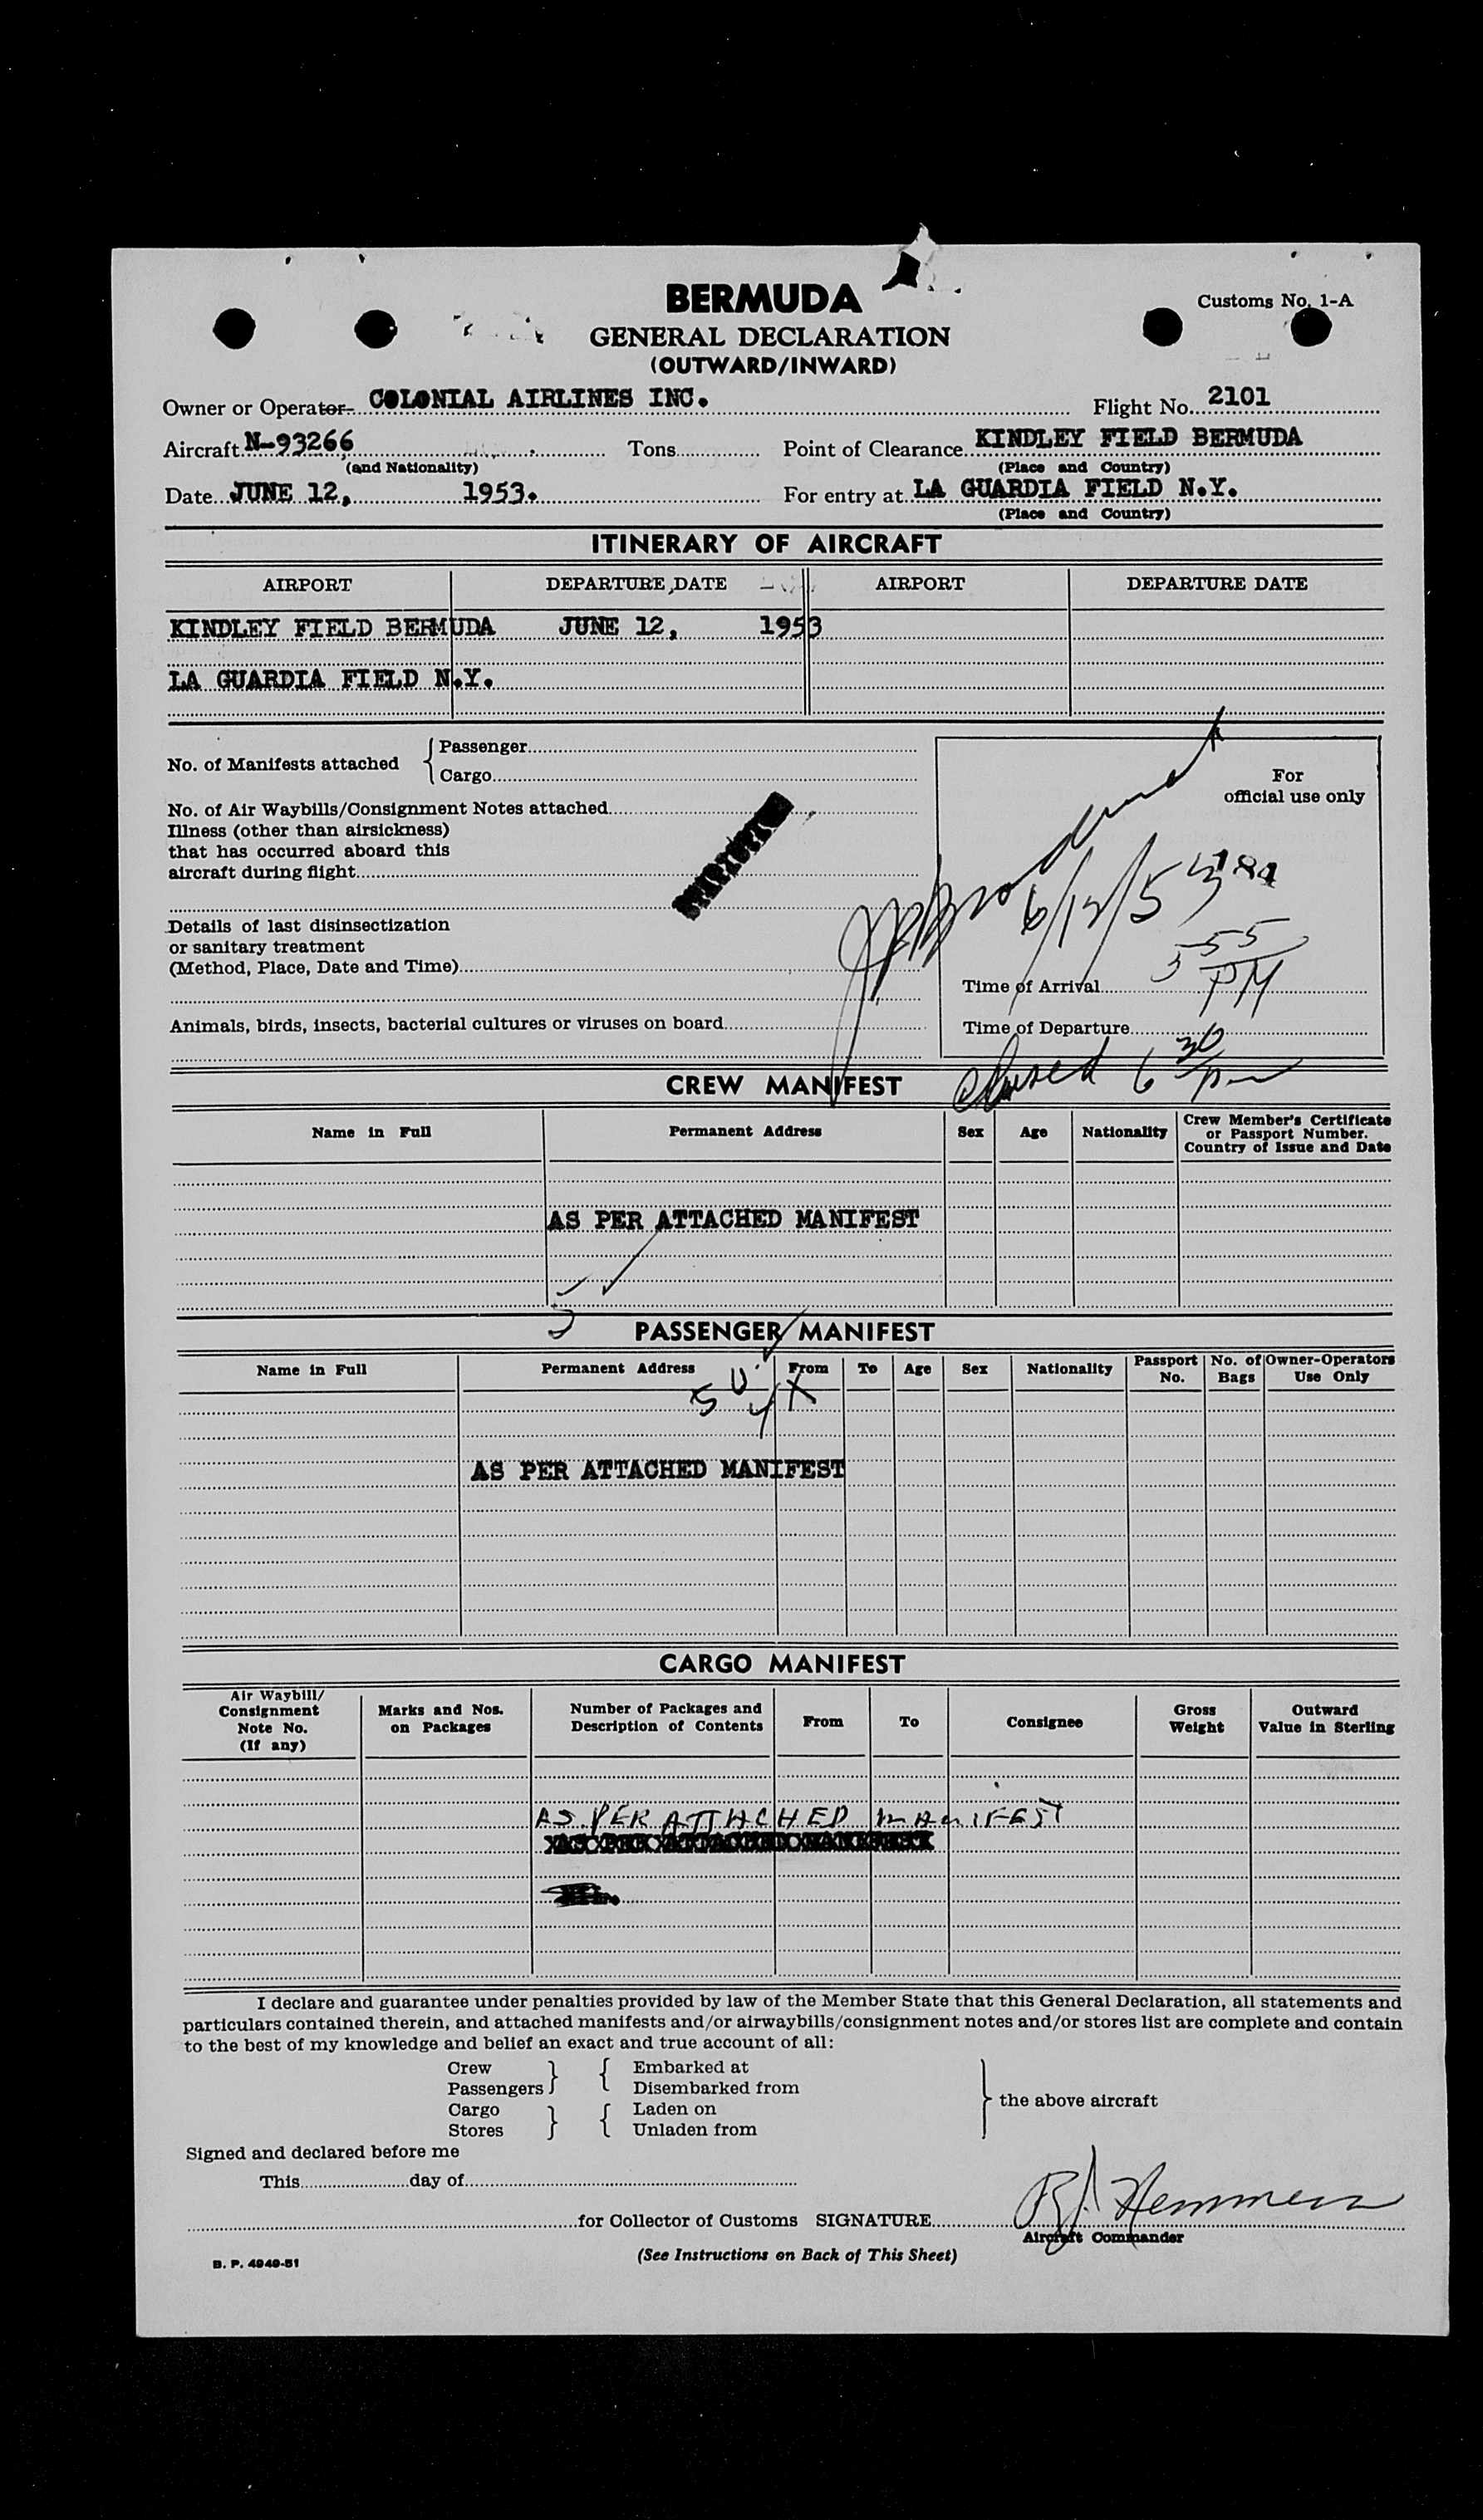 BERMUDA
Customs No. 1-A
GENERAL DECLARATION
(OUTWARD/INWARD)
Owner or Operator COLONIAL AIRLINES INC. Flight No. 2101
Aircraft N-93266 Tons Point of Clearance KINDLEY FIELD BERMUDA
(and Nationality) (Place and Country)
Date JUNE 12, 1953. For entry at LA GUARDIA FIELD N.Y.
(Place and Country)
ITINERARY OF AIRCRAFT
AIRPORT DEPARTURE DATE AIRPORT DEPARTURE DATE
KINDLEY FIELD BERMUDA JUNE 12, 1953
LA GUARDIA FIELD N.Y.
No. of Manifests attached
Passenger
Cargo
No. of Air Waybills/Consignment Notes attached
Illness (other than airsickness)
that has occurred aboard this
aircraft during flight
Details of last disinsectization
or sanitary treatment
(Method, Place, Date and Time)
Animals, birds, insects, bacterial cultures or viruses on board
For
official use only
6/12/53
Time of Arrival 5 55 PM
Time of Departure
Closed 6 30 pm
CREW MANIFEST
Name in Full Permanent Address Sex Age Nationality Crew Member's Certificate
or Passport Number.
Country of Issue and Date
AS PER ATTACHED MANIFEST
5
PASSENGER MANIFEST
Name in Full Permanent Address From To Age Sex Nationality Passport No. No. of Bags Owner-Operators Use Only
AS PER ATTACHED MANIFEST
CARGO MANIFEST
Air Waybill/
Consignment
Note No.
(If any)
Marks and Nos.
on Packages
Number of Packages and
Description of Contents
From To Consignee
Gross
Weight
Outward
Value in Sterling
AS PER ATTACHED MANIFEST
I declare and guarantee under penalties provided by law of the Member State that this General Declaration, all statements and
particulars contained therein, and attached manifests and/or airwaybills/consignment notes and/or stores list are complete and contain
to the best of my knowledge and belief an exact and true account of all:
Crew Embarked at
Passengers Disembarked from
Cargo Laden on
Stores Unladen from
the above aircraft
Signed and declared before me
This day of
for Collector of Customs SIGNATURE
Aircraft Commander
(See Instructions on Back of This Sheet)
B. P. 4949-51